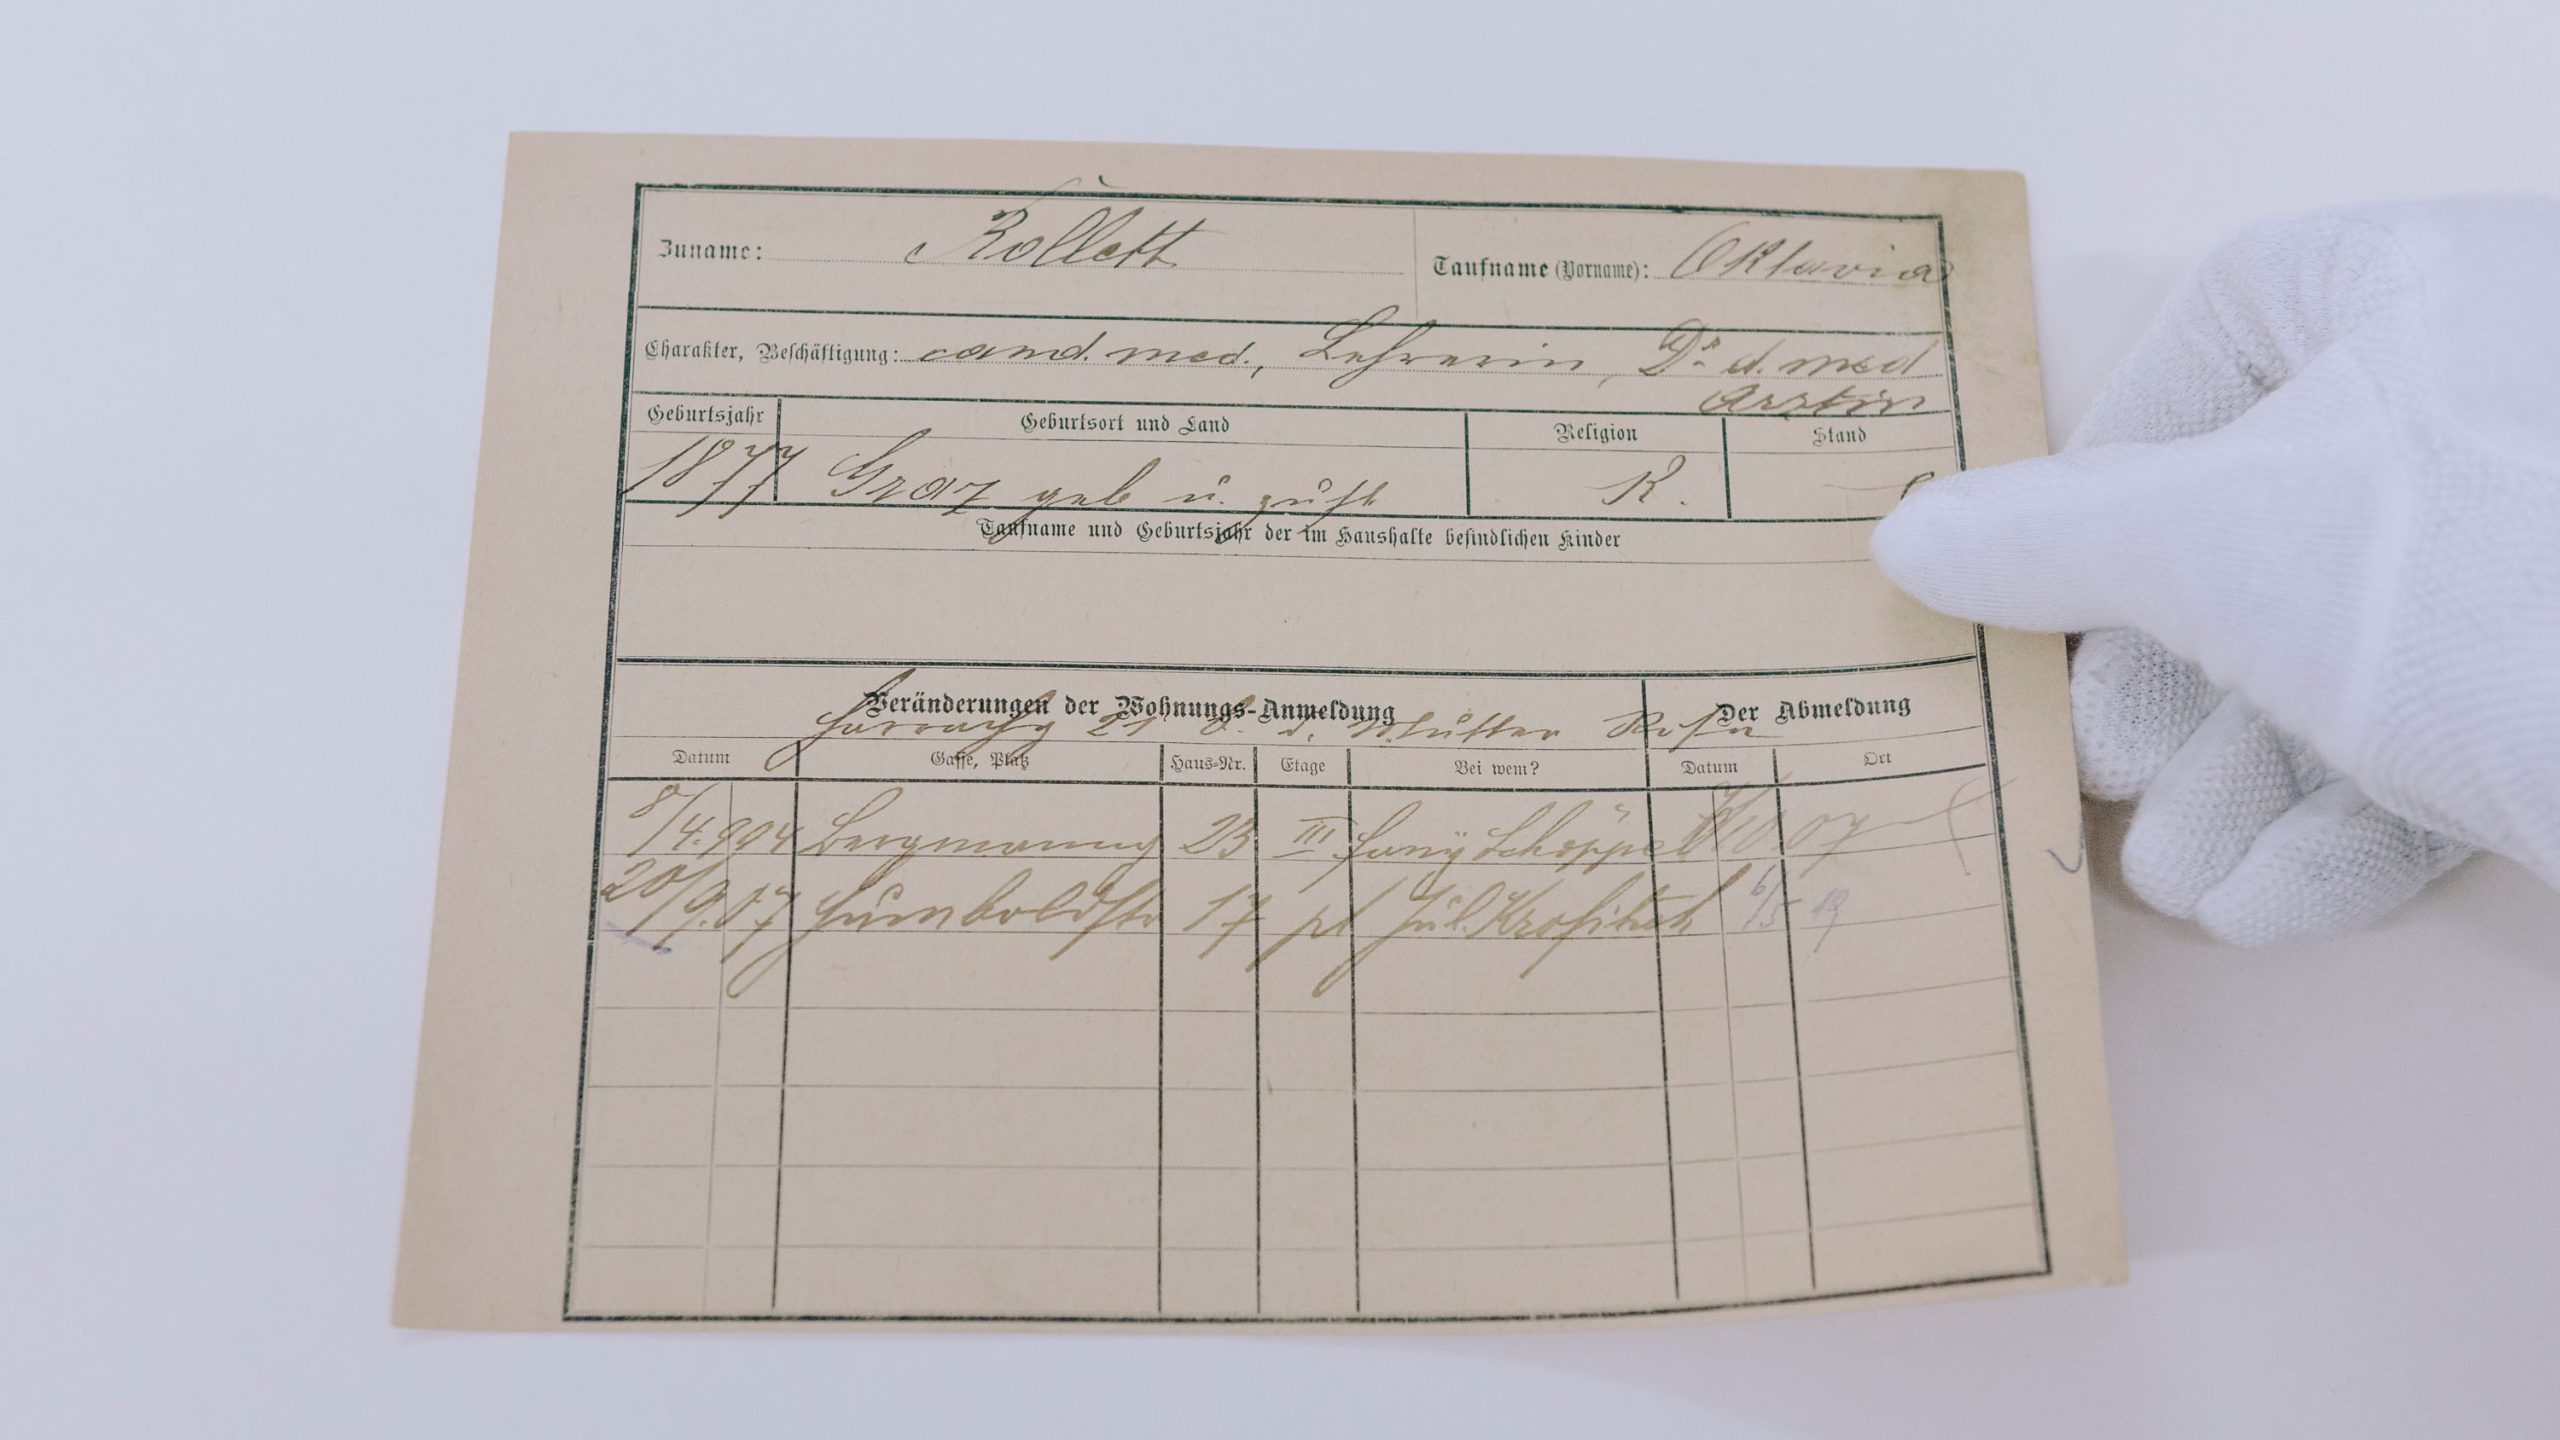 Zuname: Rollett Taufname (Vorname): Oktavia
Charakter, Beschäftigung: cand. med., Lehrerin, Dr. d. med
Ärztin
Geburtsjahr Geburtsort und Land Religion Stand
1877 Graz geb u. zust K.
Taufname und Geburtsjahr der im Haushalte befindlichen Kinder
Veränderungen der Wohnungs-Anmeldung Der Abmeldung
Harrachg 21 b. d. Mutter Rosa
Datum Gasse, Platz Haus-Nr. Etage Bei wem? Datum Ort
8/4.904 Bergmanng 23 III Fany Schöppel 10 07
20/9.07 Humboldtstr 17 pt Jul. 6/5 19